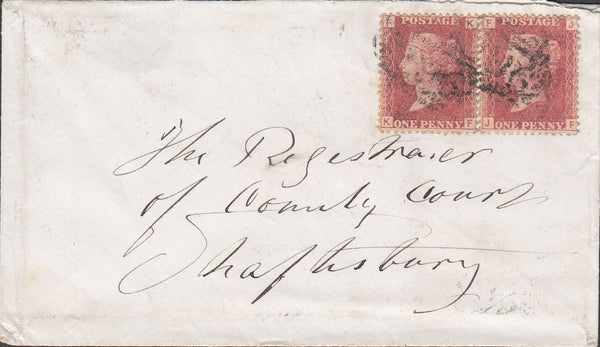 F K F J
POSTAGE POSTAGE
ONE PENNY ONE PENNY
K F J F
The Registraier
of County Court
Shaftsbury